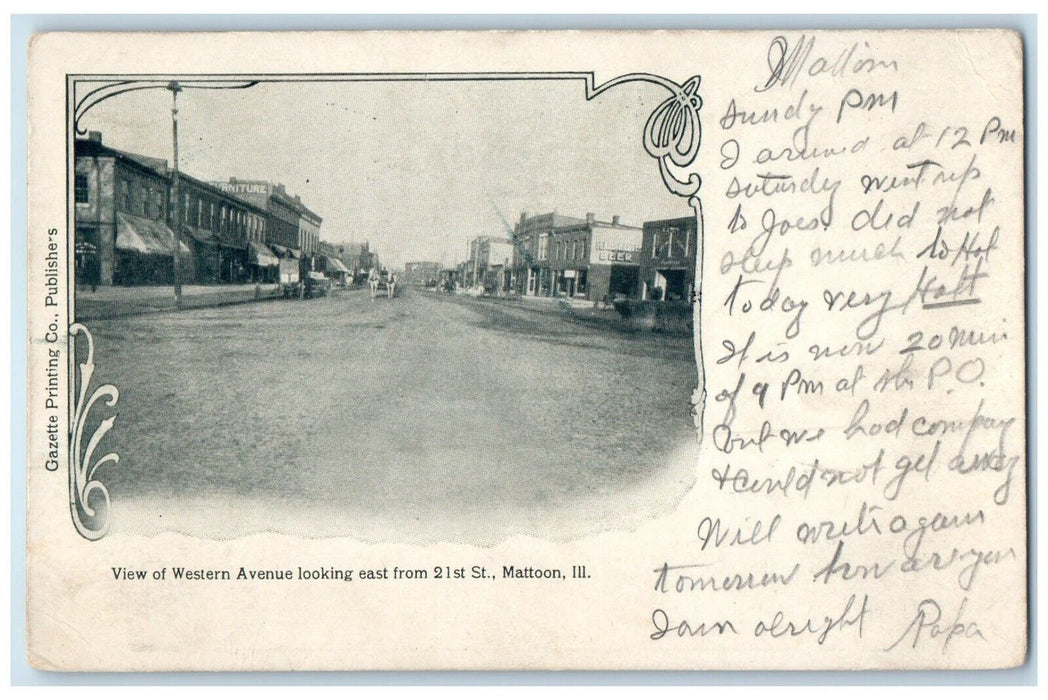 Gazette Printing Co., Publishers
FURNITURE
BEER
View of Western Avenue looking east from 21st St., Mattoon, Ill.
Mattoon
Sundy PM
I arrived at 12 Pm
Suturdy went up
to Joes. did not
sleep much to Hot
today very Hott
It is now 20 Min
of 9 Pm at the P.O.
but we had compay
+ Could not get away
Will write again
tomorrow how are you
I am alright Papa